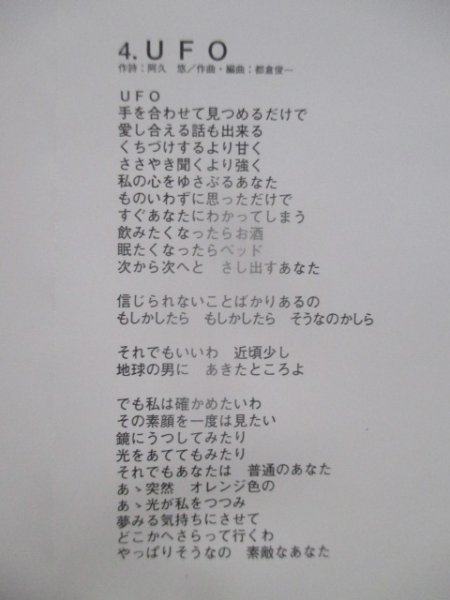 4. UFO
作詩：阿久　悠／作曲・編曲：都倉俊一
UFO
手を合わせて見つめるだけで
愛し合える話も出来る
くちづけするより甘く
ささやき聞くより強く
私の心をゆさぶるあなた
ものいわずに思っただけで
すぐあなたにわかってしまう
飲みたくなったらお酒
眠たくなったらベッド
次から次へと　さし出すあなた
信じられないことばかりあるの
もしかしたら　もしかしたら　そうなのかしら
それでもいいわ　近頃少し
地球の男に　あきたところよ
でも私は確かめたいわ
その素顔を一度は見たい
鏡にうつしてみたり
光をあててもみたり
それでもあなたは　普通のあなた
あゝ突然　オレンジ色の
あゝ光が私をつつみ
夢みる気持ちにさせて
どこかへさらって行くわ
やっぱりそうなの　素敵なあなた